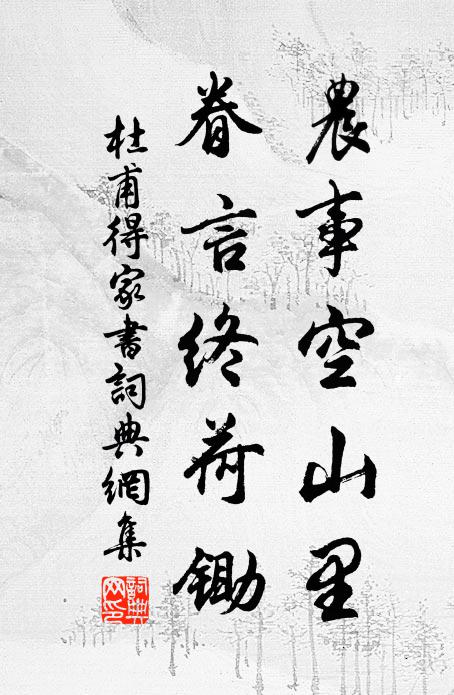 農事空山里
眷言終荷鋤
杜甫得家書詞典網集
詞典網印